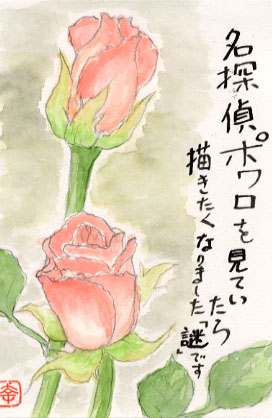 名探偵ポワロを見ていたら
描きたくなりました「謎」です